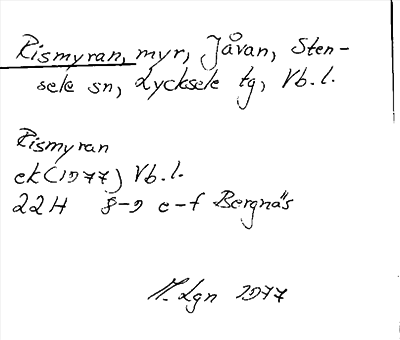 Rismyran, myr, Jåvan, Sten-
sele sn, Lycksele tg, Vb.l.
Rismyran
ek(1977) Vb.l.
22H 8-9 e-f Bergnäs
Lgn 1977